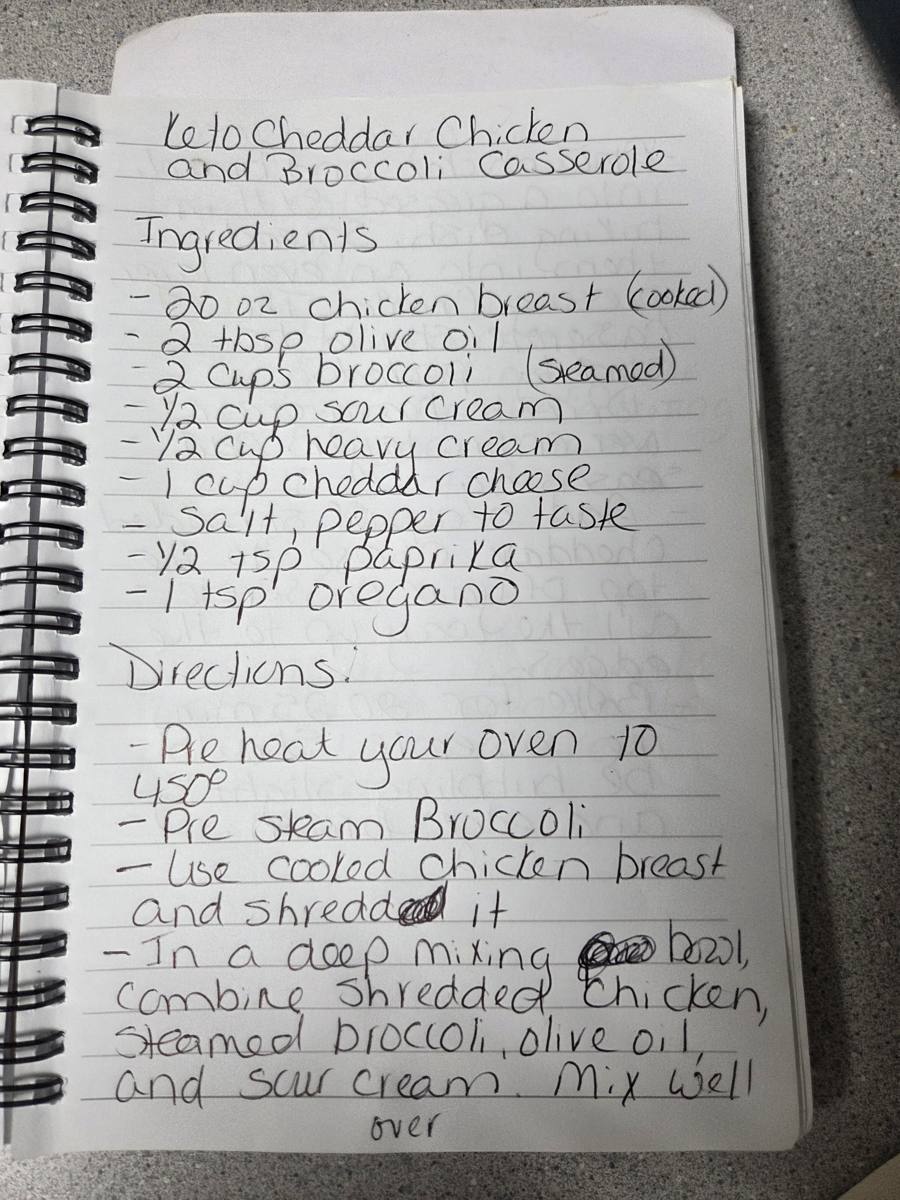 Keto Cheddar Chicken
and Broccoli Casserole
Ingredients
- 20 oz chicken breast (cooked)
- 2 tbsp olive oil
- 2 cups broccoli (steamed)
- 1/2 cup sour cream
- 1/2 cup heavy cream
- 1 cup cheddar cheese
- Salt, pepper to taste
- 1/2 tsp paprika
- 1 tsp oregano
Directions:
- Pre heat your oven to
450°
- Pre steam Broccoli
- Use cooked chicken breast
and shredd it
- In a deep mixing bowl,
combine shredded chicken,
steamed broccoli, olive oil,
and sour cream. Mix well
over